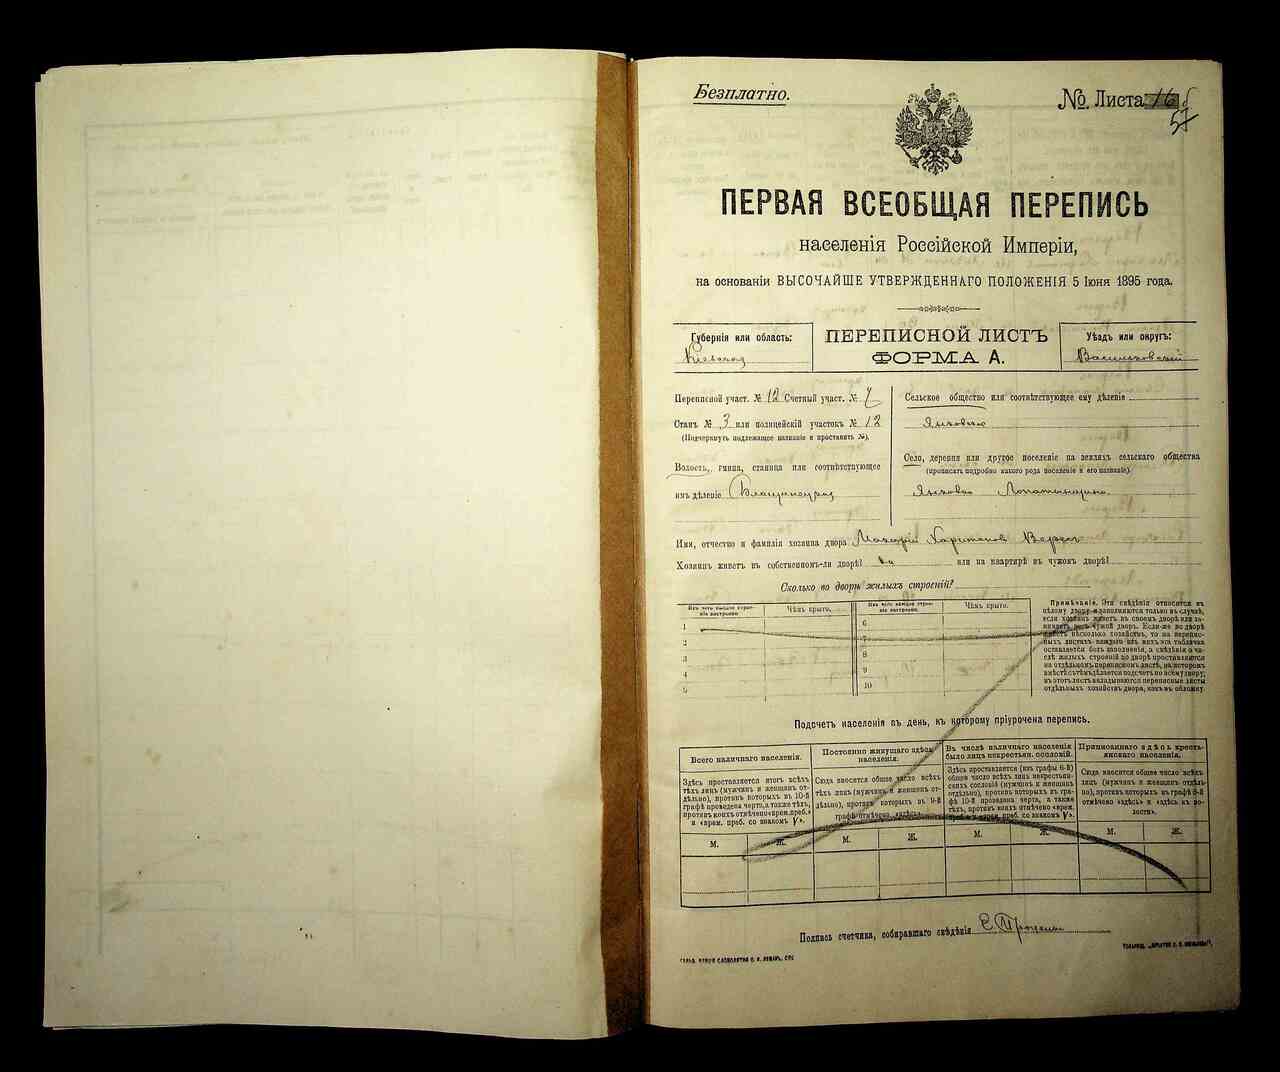 Безплатно.
№ Листа 16
57
ПЕРВАЯ ВСЕОБЩАЯ ПЕРЕПИСЬ
населенія Россійской Имперіи,
на основаніи ВЫСОЧАЙШЕ УТВЕРЖДЕННАГО ПОЛОЖЕНІЯ 5 Іюня 1895 года.
Губернія или область:
Кіевская
ПЕРЕПИСНОЙ ЛИСТЪ
ФОРМА А.
Уѣздъ или округъ:
Васильковскій
Переписной участ. № 12 Счетный участ. № 7
Станъ № 3 или полицейскій участокъ № 12
(Подчеркнуть подлежащее названіе и проставить №).
Волость, гмина, станица или соотвѣтствующее
имъ дѣленіе
Сельское общество или соотвѣтствующее ему дѣленіе
Село, деревня или другое поселеніе на земляхъ сельскаго общества
(прописать подробно какого рода поселеніе и его названіе).
Имя, отчество и фамилія хозяина двора Макарій Харитоновъ
Хозяинъ живетъ въ собственномъ-ли дворѣ? да или на квартирѣ въ чужомъ дворѣ?
Сколько во дворѣ жилыхъ строеній?
Изъ чего каждое строеніе построено.
Чѣмъ крыто.
Изъ чего каждое строеніе построено.
Чѣмъ крыто.
1
2
3
4
5
6
7
8
9
10
Примѣчаніе. Эти свѣдѣнія относятся къ
цѣлому двору и заполняются только въ случаѣ,
если хозяинъ живетъ въ своемъ дворѣ или за-
нимаетъ весь чужой дворъ. Если-же во дворѣ
имѣетъ нѣсколько хозяйствъ, то на перепис-
ныхъ листахъ каждаго изъ нихъ эта табличка
оставляется безъ заполненія, а свѣдѣнія о чи-
слѣ жилыхъ строеній во дворѣ проставляются
на отдѣльномъ переписномъ листѣ, на которомъ
вмѣстѣ съ тѣмъ дѣлается подсчетъ по всему двору;
въ этотъ листъ вкладываются переписные листы
отдѣльныхъ хозяйствъ двора, какъ въ обложку.
Подсчетъ населенія въ день, къ которому пріурочена перепись.
Всего наличнаго населенія.
Здѣсь проставляется итогъ всѣхъ
тѣхъ лицъ (мужчинъ и женщинъ от-
дѣльно), противъ которыхъ въ 10-й
графѣ проведена черта, а также тѣхъ,
противъ коихъ отмѣчено «врем. преб.»
и «врем. преб. со знакомъ V».
Постоянно живущаго здѣсь
населенія.
Сюда вносится общее число всѣхъ
тѣхъ лицъ (мужчинъ и женщинъ от-
дѣльно), противъ которыхъ въ 9-й
графѣ отмѣчено «здѣсь».
Въ числѣ наличнаго населенія
было лицъ некрестьян. сословій.
Здѣсь проставляется (изъ графы 6-й)
общее число всѣхъ лицъ некрестьян-
скихъ сословій (мужчинъ и женщинъ
отдѣльно), противъ которыхъ въ гра-
фѣ 10-й проведена черта, а также
тѣхъ, противъ коихъ отмѣчено «врем.
преб. и врем. преб. со знакомъ V».
Приписаннаго здѣсь кресть-
янскаго населенія.
Сюда вносится общее число всѣхъ
лицъ (мужчинъ и женщинъ отдѣль-
но), противъ которыхъ въ графѣ 8-й
отмѣчено «здѣсь» и «здѣсь къ во-
лости».
М. Ж. М. Ж. М. Ж. М. Ж.
Подпись счетчика, собиравшаго свѣдѣнія